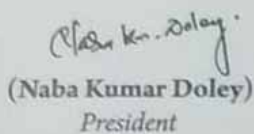 Naba Kr. Doley.
(Naba Kumar Doley)
President